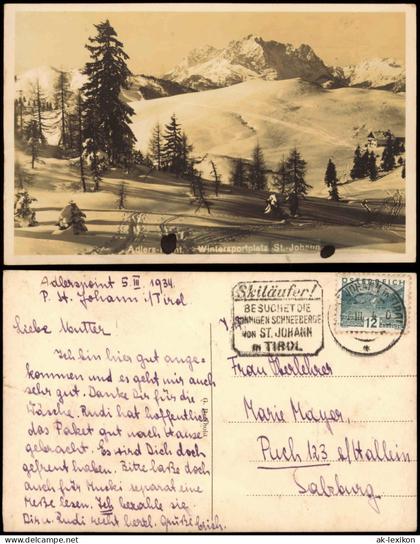 Adlers-Point. Wintersportplatz St. Johann
Adlerspoint 5. III. 1934.
P. St. Johann i/Tirol
Liebe Mutter!
Ich bin hier gut ange-
kommen und es geht mir auch
sehr gut. Danke Dir für die
Wäsche. Rudi hat hoffentlich
das Paket gut nach Hause
gebracht. Es wird Dich doch
gefreut haben. Bitte laße doch
auch für Mucki separat eine
Meße lesen. Ich bezahle sie
Dir u. Rudi recht herzl. Grüße
Skiläufer!
BESUCHET DIE
SONNIGEN SCHNEEBERGE
VON ST. JOHANN
IN TIROL
ÖSTERREICH
12
Frau Oberlehrer
Marie Mayer,
Puch 123 b/Hallein
Salzburg
ak-lexikon